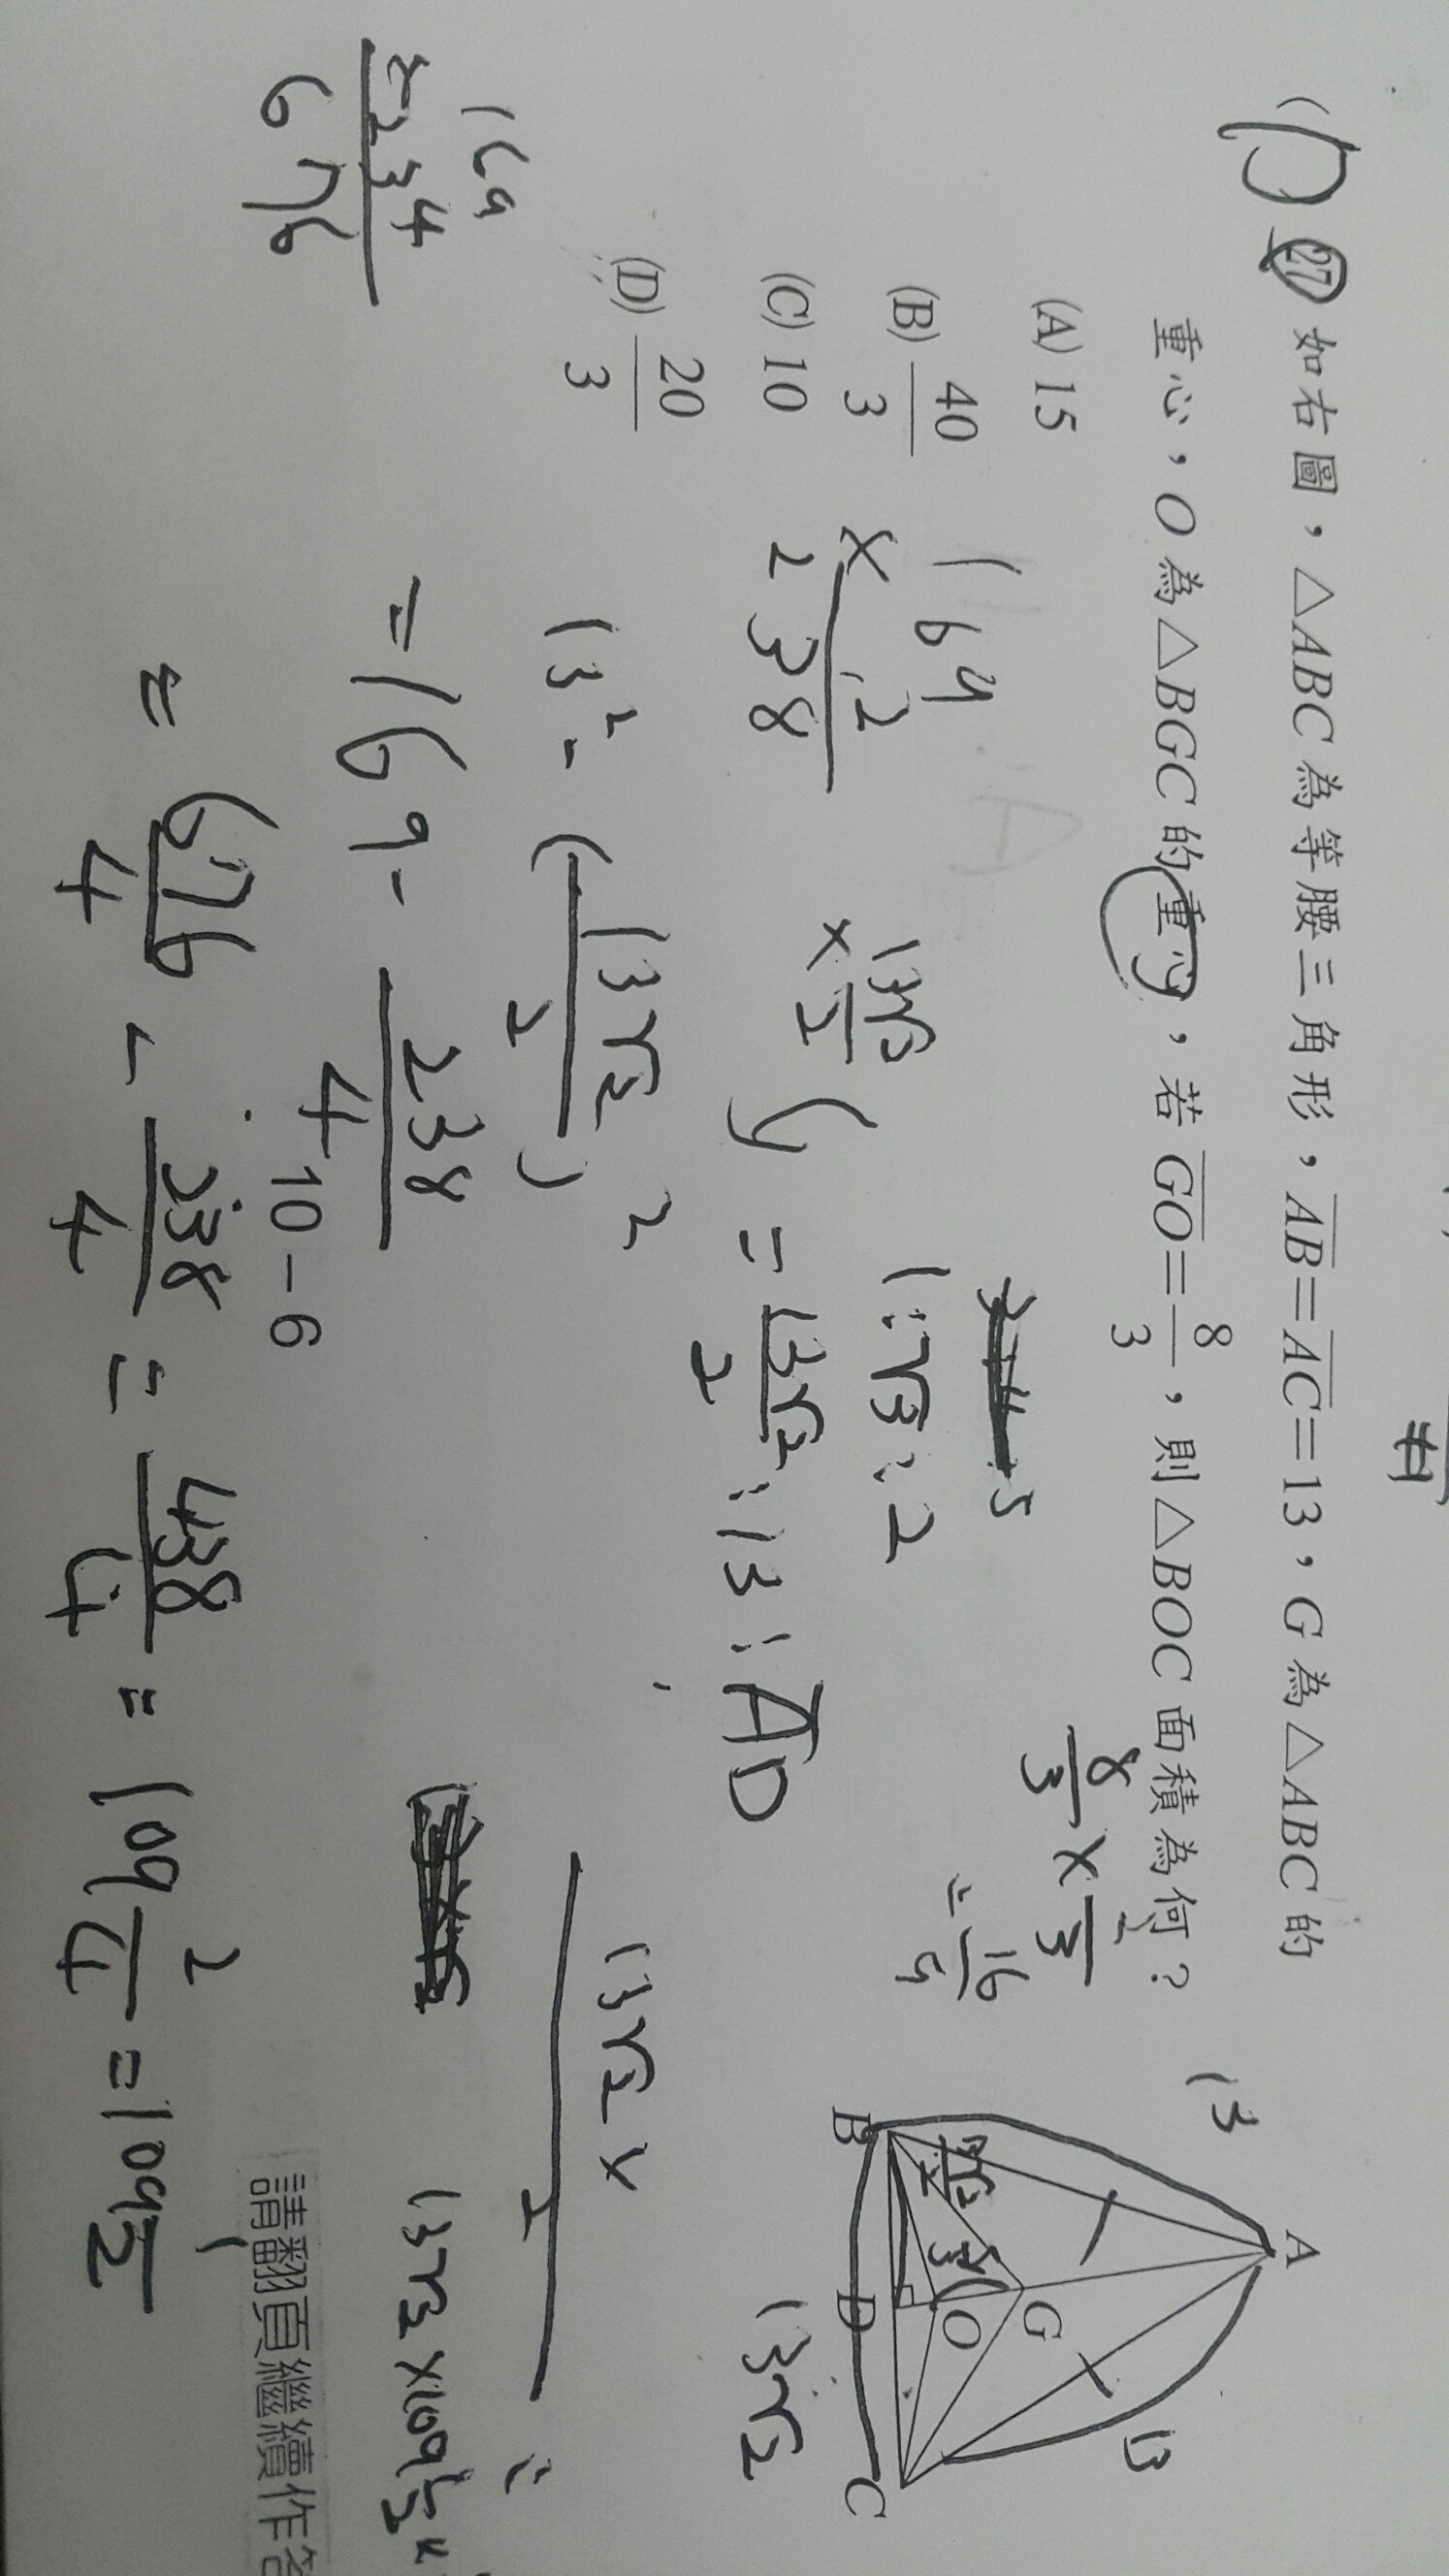 27 如右圖，△ABC為等腰三角形，AB=AC=13，G為△ABC的
重心，O為△BGC的重心，若GO=8/3，則△BOC面積為何？
(A) 15
(B) 40/3
(C) 10
(D) 20/3
8/3 × 
A
13
13
G
O
B
D
C
13√2
1:√3:2
= 13√2/2 : 13 : AD
169
× 2
238
13² - (13√2/2)²
= 169 - 238/4
= 676/4 - 238/4 = 438/4 = 109 2/4 = 109 1/2
169
× 4
676
13√2 ×
2
13√2 × 109 1/2
10－6
請翻頁繼續作答